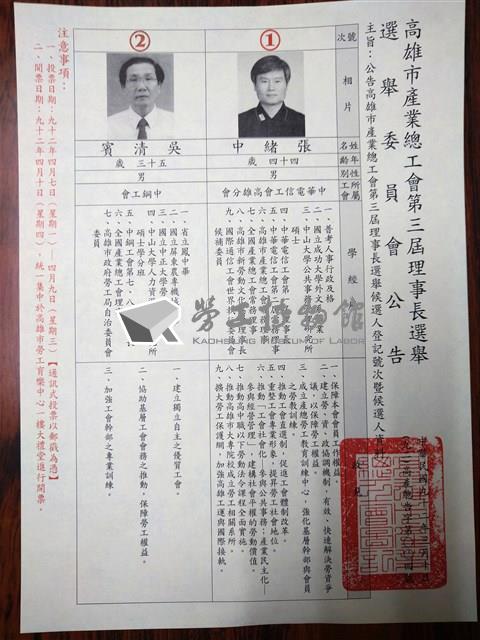 高雄市產業總工會第三屆理事長選舉
選舉委員會公告
主旨：公告高雄市產業總工會第三屆理事長選舉候選人登記號次暨候選人資料
號次
相片
姓名
年齡
性別
所屬工會
學經
①
張緒中
四十四歲
男
中華電信工會高雄分會
一、普考人事行政及格
二、國立成功大學外文系畢業
三、中山大學公共事務
碩士
四、中華電信工會第
五、中華電信工會第
六、高雄市產業總工會
七、全國產業總工會常務理事
八、高雄市新勞動文化
九、國際通信工會世界
候補委員
一、保障本會會員工作權益。
二、建立勞、資、政協調機制，有效、快速解決勞資爭
議，以保障勞工權益。
三、成立產總勞工教育訓練中心，強化基層幹部與會員
之勞教訓練。
四、推動工會直選制，促進工會體制改革。
五、重整工會專業形象，提昇勞工社會地位。
六、推動「工會社會化—參與公共事務；產業民主化—
參與經營管理」，建構社會平權的勞動價值。
七、推動高中職以下勞動法令課程全面實施。
八、推動高雄市大專院校成立勞工相關系所。
九、擴大勞工保護網，加強高雄工運與國際接軌。
②
吳清賓
五十三歲
男
中鋼工會
一、省立鳳中畢
二、國立屏東農專機械
三、國立中正大學勞
四、中山大學人力資
碩士學分班
五、中鋼工會第七、八
六、全國產業總工會理事
七、高雄市政府勞工局自治委員會
委員
一、建立獨立自主之優質工會。
二、協助基層工會會務之推動，保障勞工權益。
三、加強工會幹部之專業訓練。
注意事項：
一、投票日期：九十二年四月七日（星期一）—四月九日（星期三）【通訊式投票以郵戳為憑】
二、開票日期：九十二年四月十日（星期四），統一集中於高雄市勞工育樂中心一樓大禮堂進行開票。
勞工博物館
KAOHSIUNG MUSEUM OF LABOR